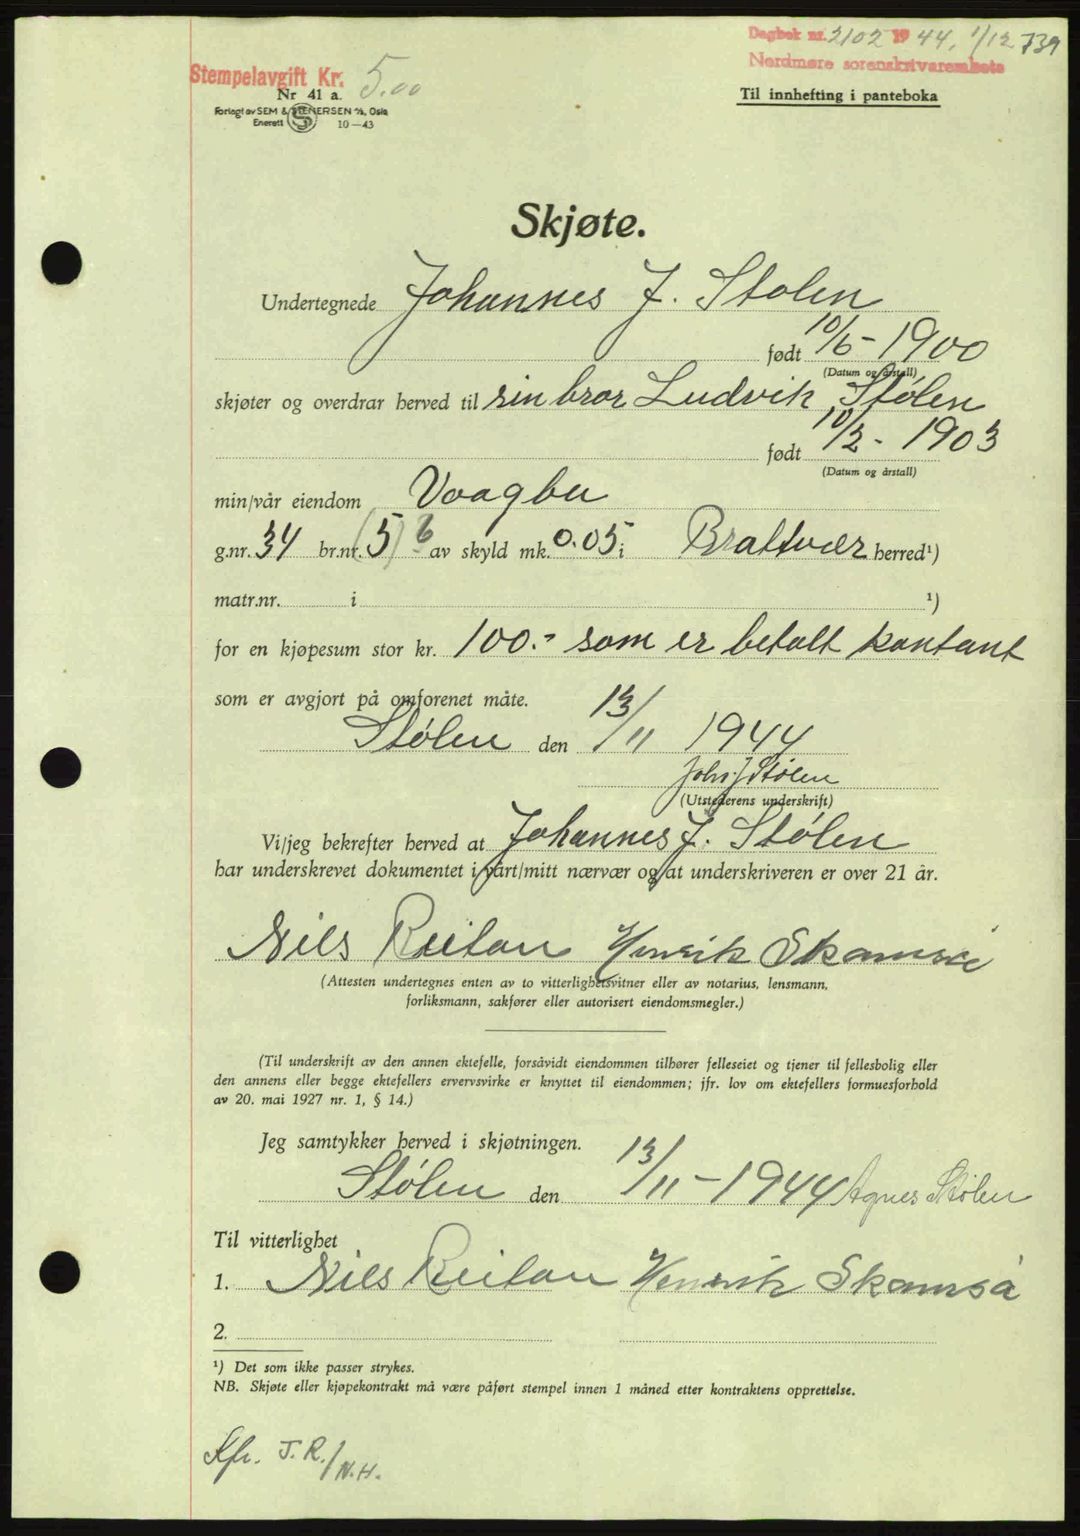 Dagbok nr. 2102 1944, 1/12 739
Nordmøre sorenskriverembete
Stempelavgift Kr. 5.00
Nr 41 a.
Forlagt av SEM & STENERSEN A/S, Oslo
Enerett 10-43
Til innhefting i panteboka
Skjøte.
Undertegnede Johannes J. Stølen
født 10/6-1900
(Datum og årstall)
skjøter og overdrar herved til sin bror Ludvik Stølen
født 10/3-1903
(Datum og årstall)
min/vår eiendom Vaagbu
g.nr. 34 br.nr. (5) 6 av skyld mk. 0.05 i Brattvær herred¹)
matr.nr. i ¹)
for en kjøpesum stor kr. 100.- som er betalt kontant
som er avgjort på omforenet måte.
Stølen den 13/11 1944
Johs J Stølen
(Utstederens underskrift)
Vi/jeg bekrefter herved at Johannes J. Stølen
har underskrevet dokumentet i vårt/mitt nærvær og at underskriveren er over 21 år.
Nils Reitan Henrik Skamsø
(Attesten undertegnes enten av to vitterlighetsvitner eller av notarius, lensmann,
forliksmann, sakfører eller autorisert eiendomsmegler.)
(Til underskrift av den annen ektefelle, forsåvidt eiendommen tilhører felleseiet og tjener til fellesbolig eller
den annens eller begge ektefellers ervervsvirke er knyttet til eiendommen; jfr. lov om ektefellers formuesforhold
av 20. mai 1927 nr. 1, § 14.)
Jeg samtykker herved i skjøtningen.
Stølen den 13/11-1944 Agnes Stølen
Til vitterlighet
1. Nils Reitan Henrik Skamsø
2.
¹) Det som ikke passer strykes.
NB. Skjøte eller kjøpekontrakt må være påført stempel innen 1 måned etter kontraktens opprettelse.
Kfr. J.R./N.H.